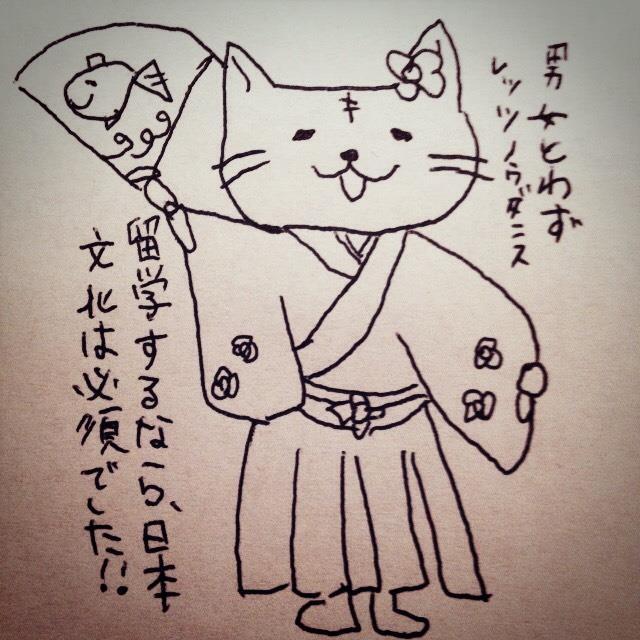 男女とわず
レッツノウダンス
留学するなら、日本
文化は必須でした!!